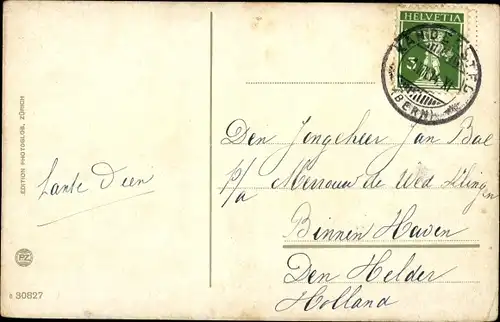 EDITION PHOTOGLOB, ZÜRICH
PZ
30827
Tante Dien
HELVETIA
KANDERSTEG
(BERN)
Den Jongeheer Jan Bal
p/a Mevrouw de Wed Klingen
Binnen Haven
Den Helder
Holland